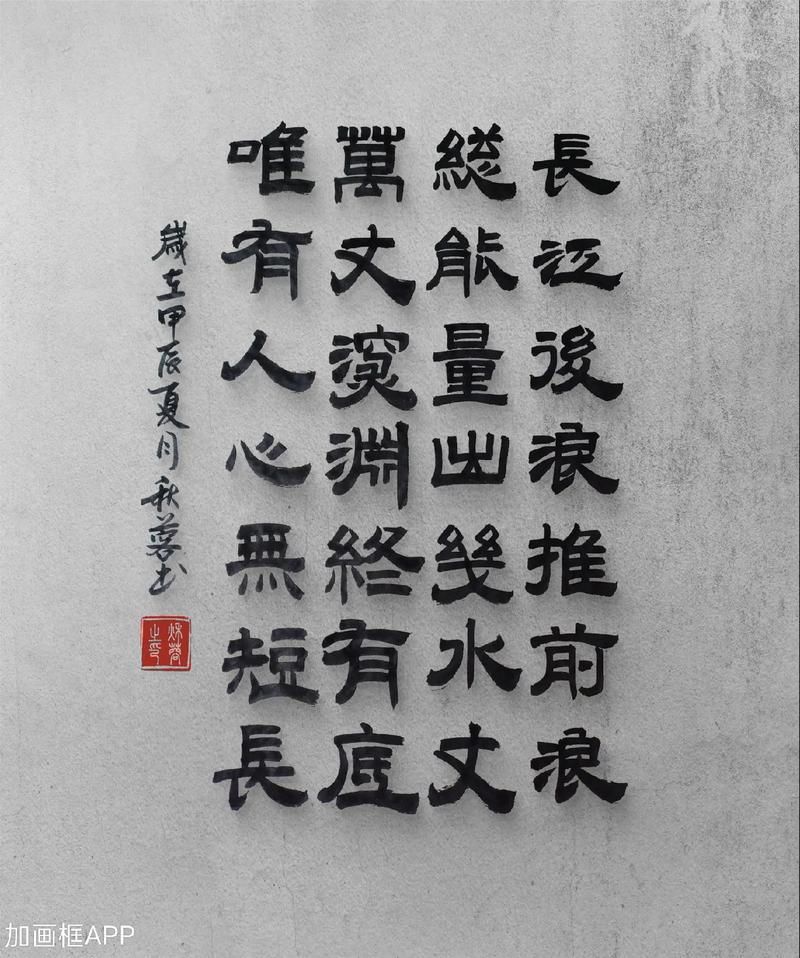 長江後浪推前浪
緫能量出幾水丈
萬丈深淵終有底
唯有人心無短長
歲在甲辰夏月秋蓉书
秋蓉之印
加画框APP